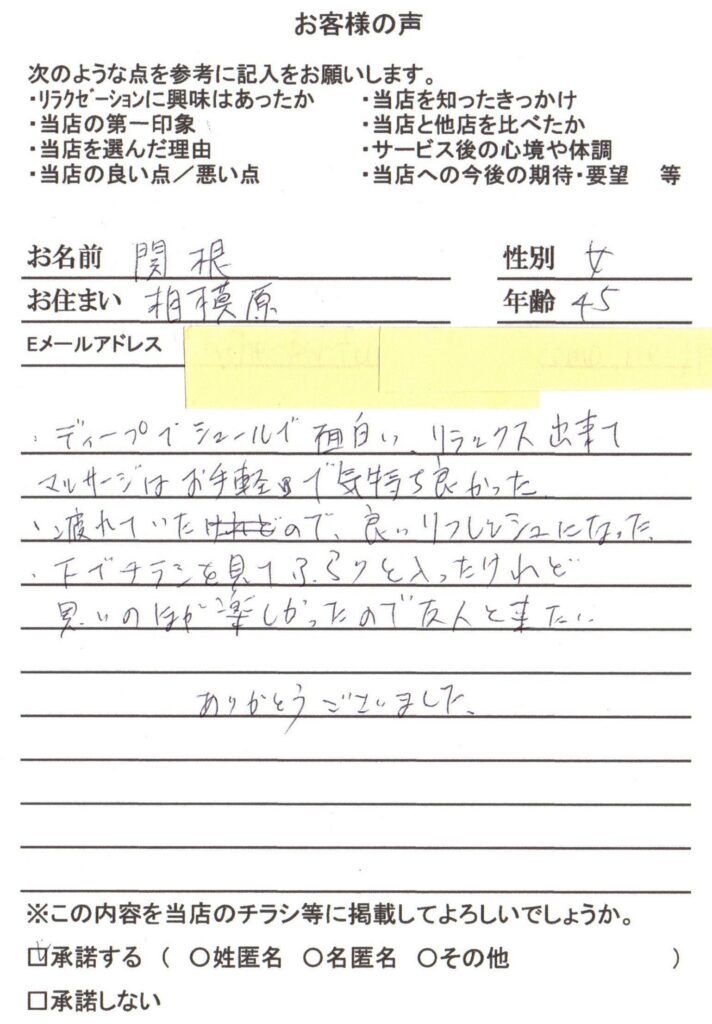 お客様の声
次のような点を参考に記入をお願いします。
・ﾘﾗｸｾﾞｰｼｮﾝに興味はあったか ・当店を知ったきっかけ
・当店の第一印象 ・当店と他店を比べたか
・当店を選んだ理由 ・サービス後の心境や体調
・当店の良い点／悪い点 ・当店への今後の期待・要望 等
お名前 関根 性別 女
お住まい 相模原 年齢 45
Eメールアドレス
・ディープでシュールで面白い、リラックス出来て
マッサージはお手軽で気持ち良かった。
疲れていたけれどので、良いリフレッシュになった。
・下でチラシを見てふらりと入ったけれど
思いのほか楽しかったので友人と来たい。
ありがとうございました。
※この内容を当店のチラシ等に掲載してよろしいでしょうか。
☑承諾する ( ○姓匿名 ○名匿名 ○その他 )
□承諾しない